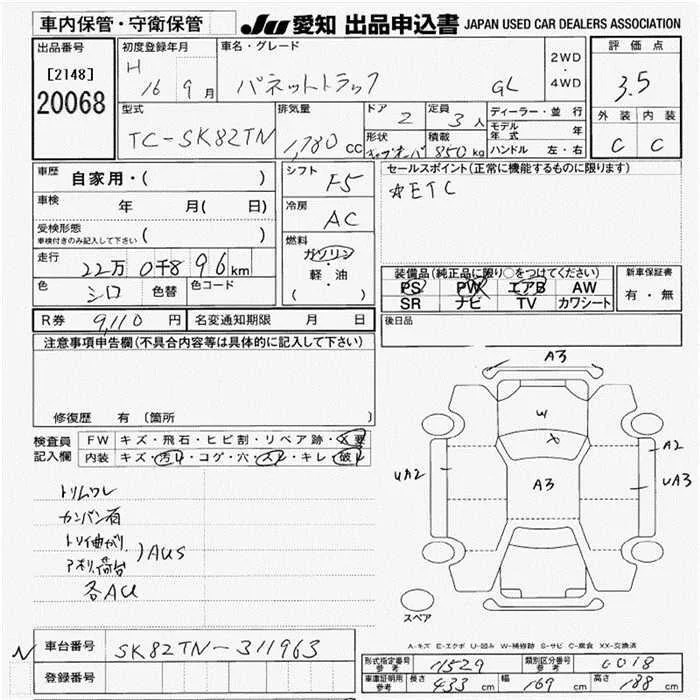 車内保管・守衛保管
JU 愛知 出品申込書 JAPAN USED CAR DEALERS ASSOCIATION
出品番号
[2148]
20068
初度登録年月
H 16 9月
車名・グレード
バネットトラック GL
2WD
・
4WD
評価点
3.5
外装 内装
C C
型式
TC-SK82TN
排気量
1,780 cc
ドア
2
定員
3人
形状
積載
850kg
ディーラー・並行
モデル年式 年
ハンドル 左・右
車歴 自家用・( )
車検 年 月( 日)
受検形態
車検付きのみ記入して下さい ( )
走行 22万 0千896km
色 シロ 色替 色コード
シフト F5
冷房 AC
燃料
ガソリン
・
軽・油
( )
セールスポイント(正常に機能するものに限ります)
☆ETC
装備品(純正品に限り○をつけてください)
PS PW エアB AW
SR ナビ TV カワシート
新車保証書
有・無
後日品
R券 9,110円 名変通知期限 月 日
注意事項申告欄(不具合内容等は具体的に記入して下さい)
修復歴 有 〔箇所 〕
検査員
記入欄
FW キズ・飛石・ヒビ割・リペア跡・X要
内装 キズ・汚レ・コゲ・穴・スレ・キレ・破レ
トリムワレ
カンバン有
トリイ曲がり
アオリ、荷台
)AUS
各AU
A3
W
X
A2
UA2
A3
UA3
スペア
A-キズ E-エクボ U-凹み W-補修跡 S-サビ C-腐食 XX-交換済
N
車台番号 SK82TN-311963
登録番号
型式指定番号 参考 11529 類別区分番号 参考 0018
車庫証明用 参考 長さ 433cm 幅 169cm 高さ 188cm